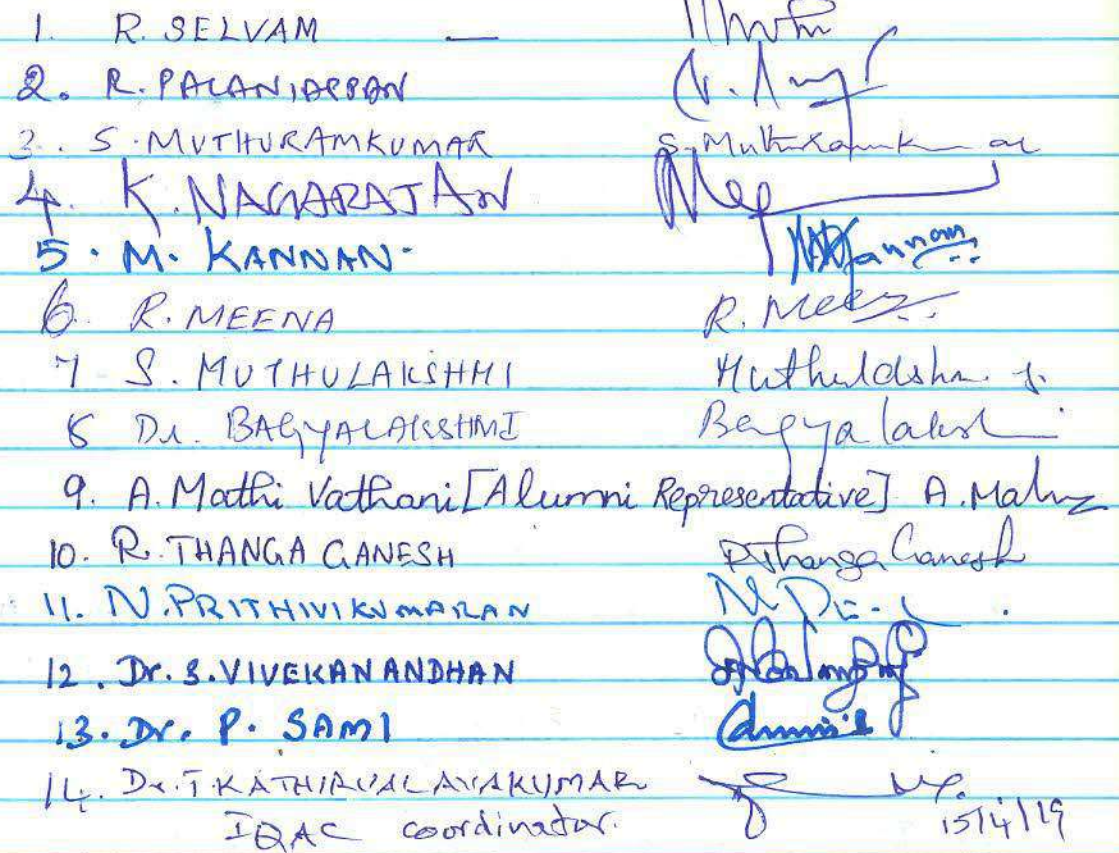 1. R. SELVAM —
2. R. PALANIAPPAN
3. S. MUTHURAMKUMAR S. Muthuramkumar
4. K. NAGARAJAN
5. M. KANNAN. Kannan
6. R. MEENA R. Meena
7 S. MUTHULAKSHMI Muthulakshmi S.
8 Dr. BAGYALAKSHMI Bagyalakshmi
9. A. Mathi Vathani [Alumni Representative] A. Mathi
10. R. THANGA GANESH R. Thanga Ganesh
11. N. PRITHIVIKUMARAN
12. Dr. S. VIVEKANANDHAN
13. Dr. P. SAMI
14. Dr. T. KATHIRVALAVAKUMAR
IQAC coordinator. 15/4/19